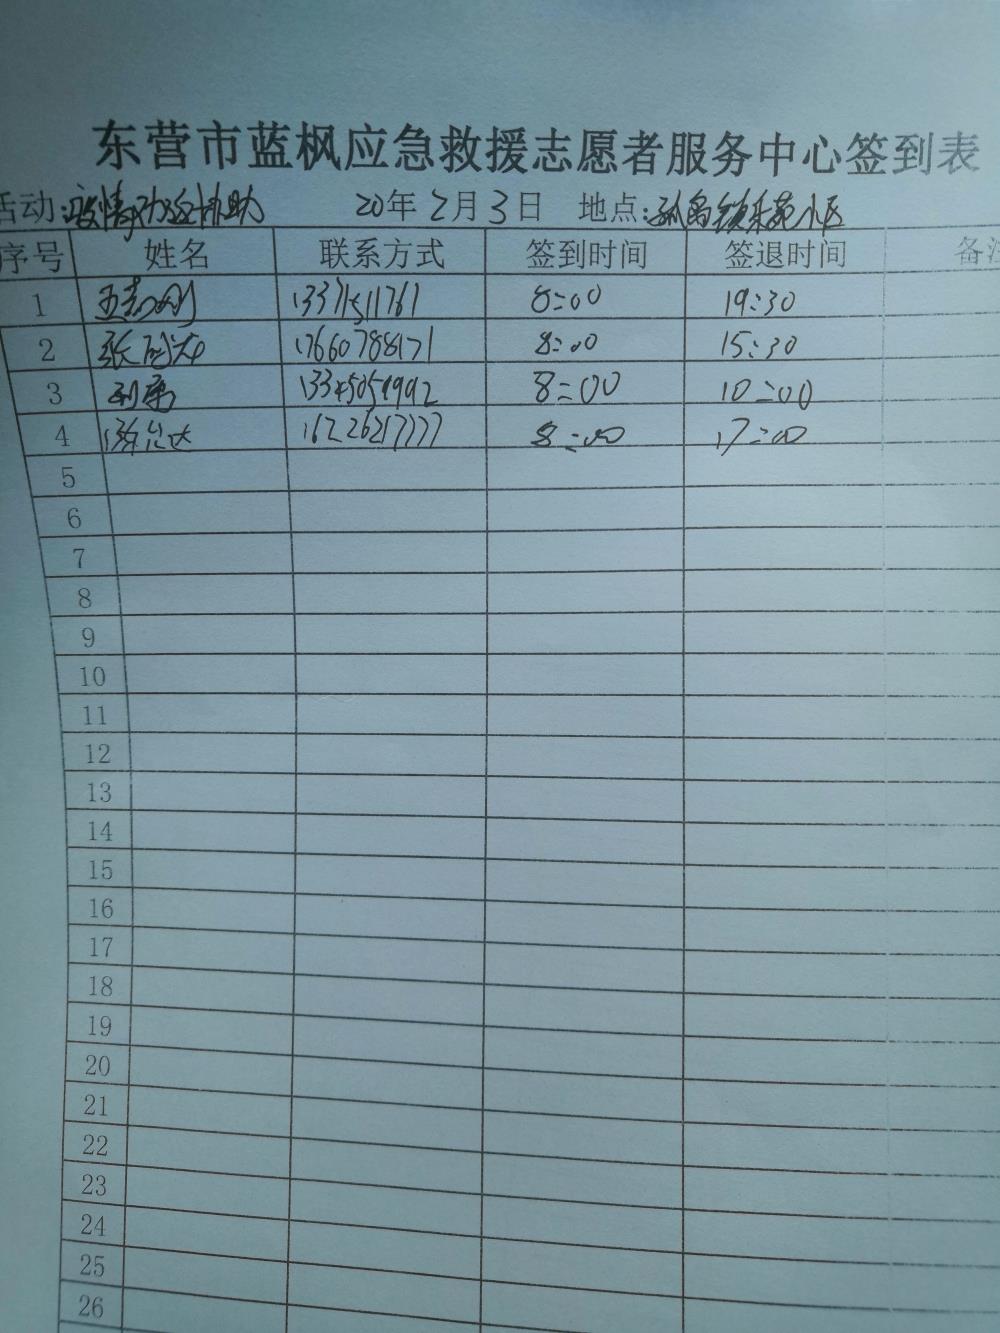 东营市蓝枫应急救援志愿者服务中心签到表
活动:疫情防控协助 20年2月3日 地点:孤岛镇乐苑小区
序号 姓名 联系方式 签到时间 签退时间 备注
1 13371511761 8:00 19:30
2 张 17660788171 8:00 15:30
3 13345051992 8:00 10:00
4 16226217777 8:00 17:00
5
6
7
8
9
10
11
12
13
14
15
16
17
18
19
20
21
22
23
24
25
26